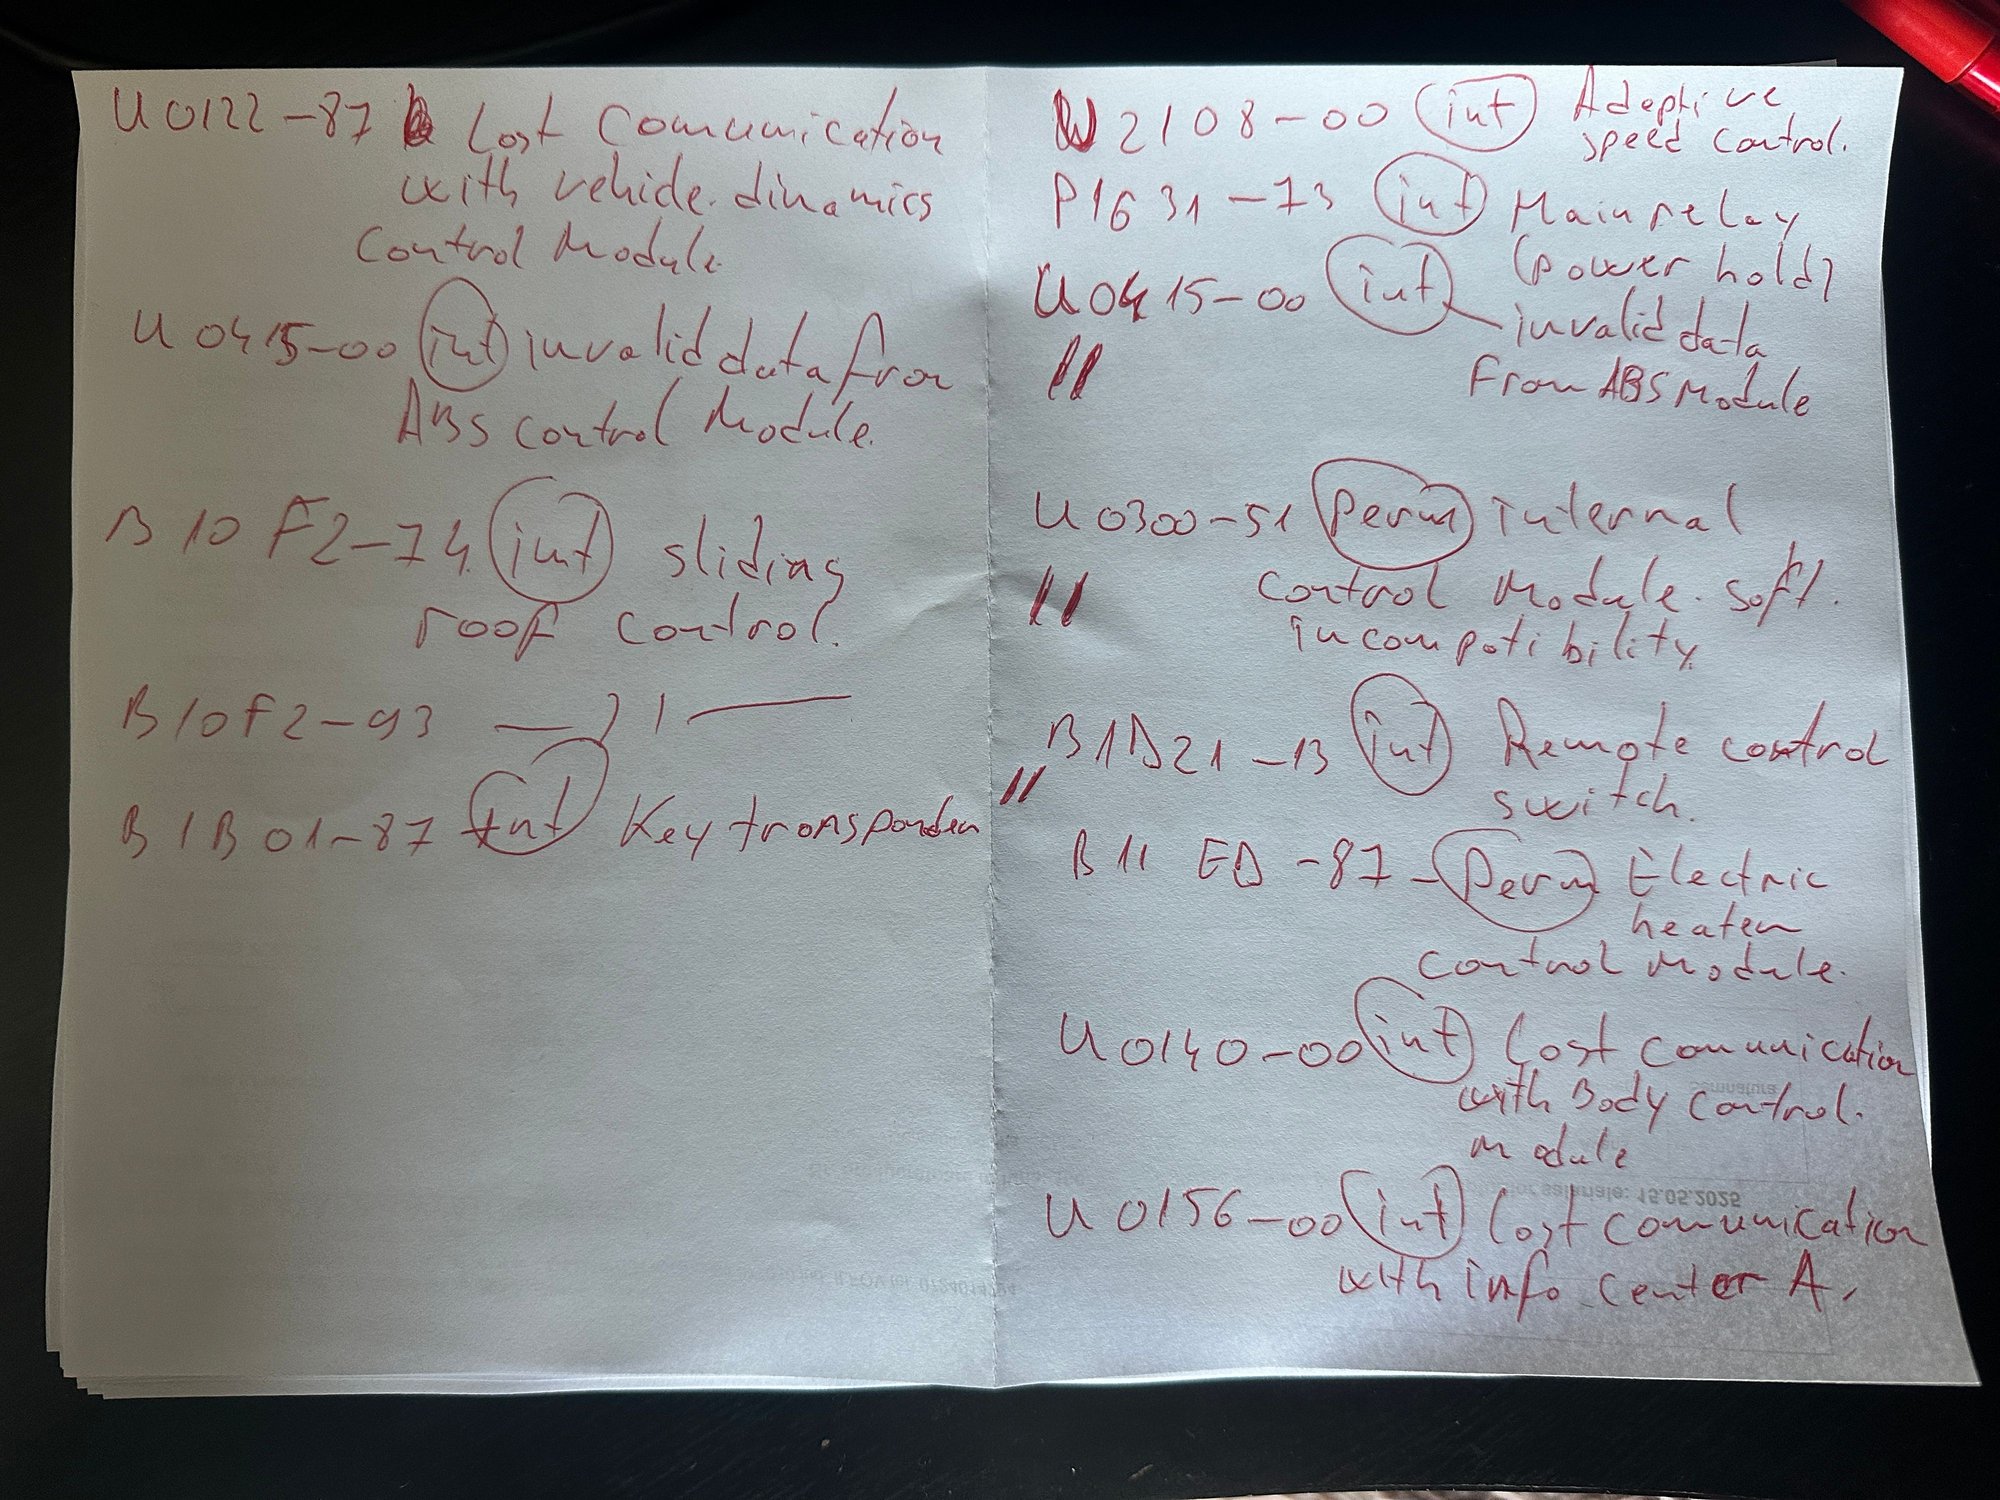 U0122-87 Lost Comunication
with vehicle. dinamics
Control Module.
U0415-00 int invalid data from
ABS control Module.
B10F2-74 int sliding
roof control.
B10F2-93 — 11 —
B1B01-87 int Key transponder
U2108-00 int Adaptive
speed control.
P1631-73 int Main relay
(power hold)
U0415-00 int invalid data
" From ABS Module
U0300-51 Perm internal
" control Module. soft.
incompatibility.
B1D21-13 int Remote control
" switch.
B11ED-87 - Perm Electric
heater
control Module.
U0140-00 int Lost comunication
with Body control.
module
U0156-00 int Lost comunication
with info center A.